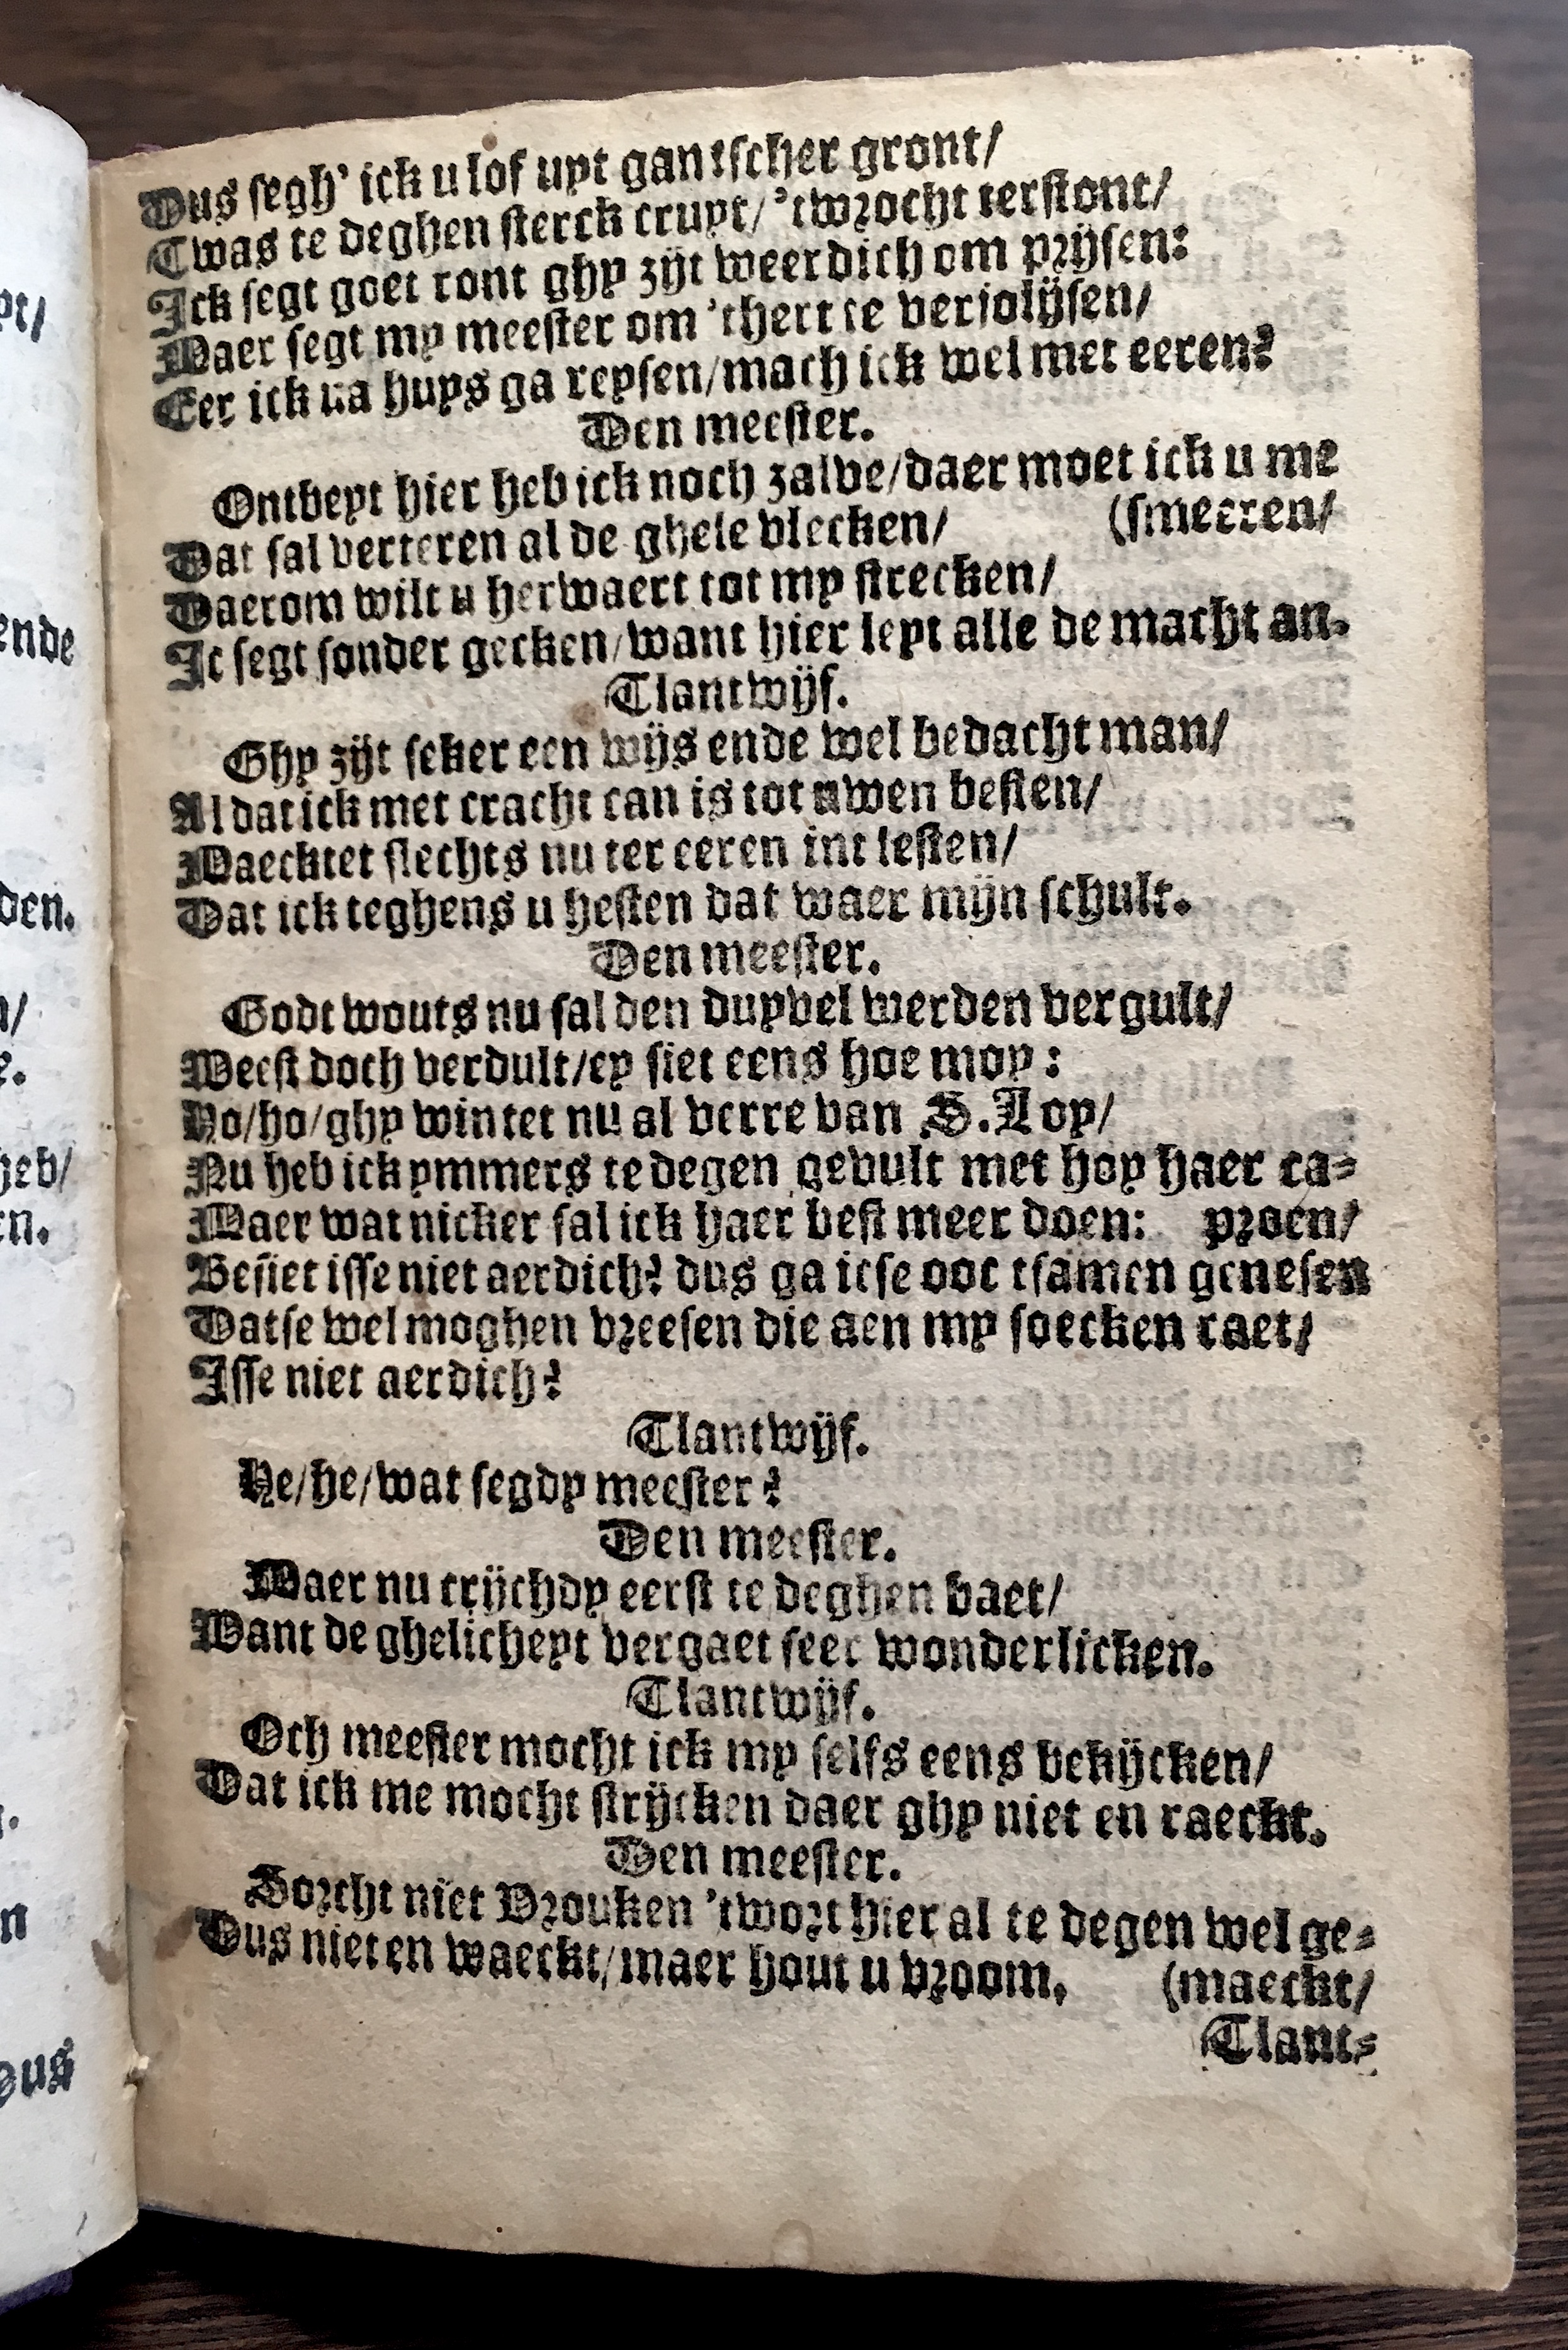 Dus segh' ick u lof uyt gantscher gront/
Twas te deghen sterck cruyt/ 'twrocht terstont/
Ick segt goet ront ghy zijt weerdich om prijsen:
Maer segt my meester om 'thert te verjolijsen/
Eer ick na huys ga reysen/mach ick wel met eeren?
Den meester.
Ontbeyt hier heb ick noch zalve/daer moet ick u me
(smeeren/
Dat sal verteren al de ghele vlecken/
Daerom wilt u herwaert tot my strecken/
Ic segt sonder gecken/want hier leyt alle de macht an.
Tlantwijf.
Ghy zijt seker een wijs ende wel bedacht man/
Al dat ick met cracht can is tot uwen besten/
Maecktet slechts nu ter eeren int lesten/
Dat ick teghens u hesten dat waer mijn schult.
Den meester.
Godt wouts nu sal den duyvel werden vergult/
Weest doch verdult/ey siet eens hoe moy:
Ho/ho/ghy wintet nu al verre van S. Loy/
Nu heb ick ymmers te degen gevult met hoy haer ca-
Maer wat nicker sal ick haer best meer doen: proen/
Besiet isse niet aerdich? dus ga icse ooc tsamen genesen
Datse wel moghen vreesen die aen my soecken raet/
Isse niet aerdich?
Tlantwijf.
He/he/wat segdy meester?
Den meester.
Maer nu crijchdy eerst te deghen baet/
Want de ghelicheyt vergaet seer wonderlicken.
Tlantwijf.
Och meester mocht ick my selfs eens bekijcken/
Dat ick me mocht strijcken daer ghy niet en raeckt.
Den meester.
Sorcht niet Vrouken 'twort hier al te degen wel ge-
Dus niet en waeckt/maer hout u vroom. (maeckt/
Tlant-